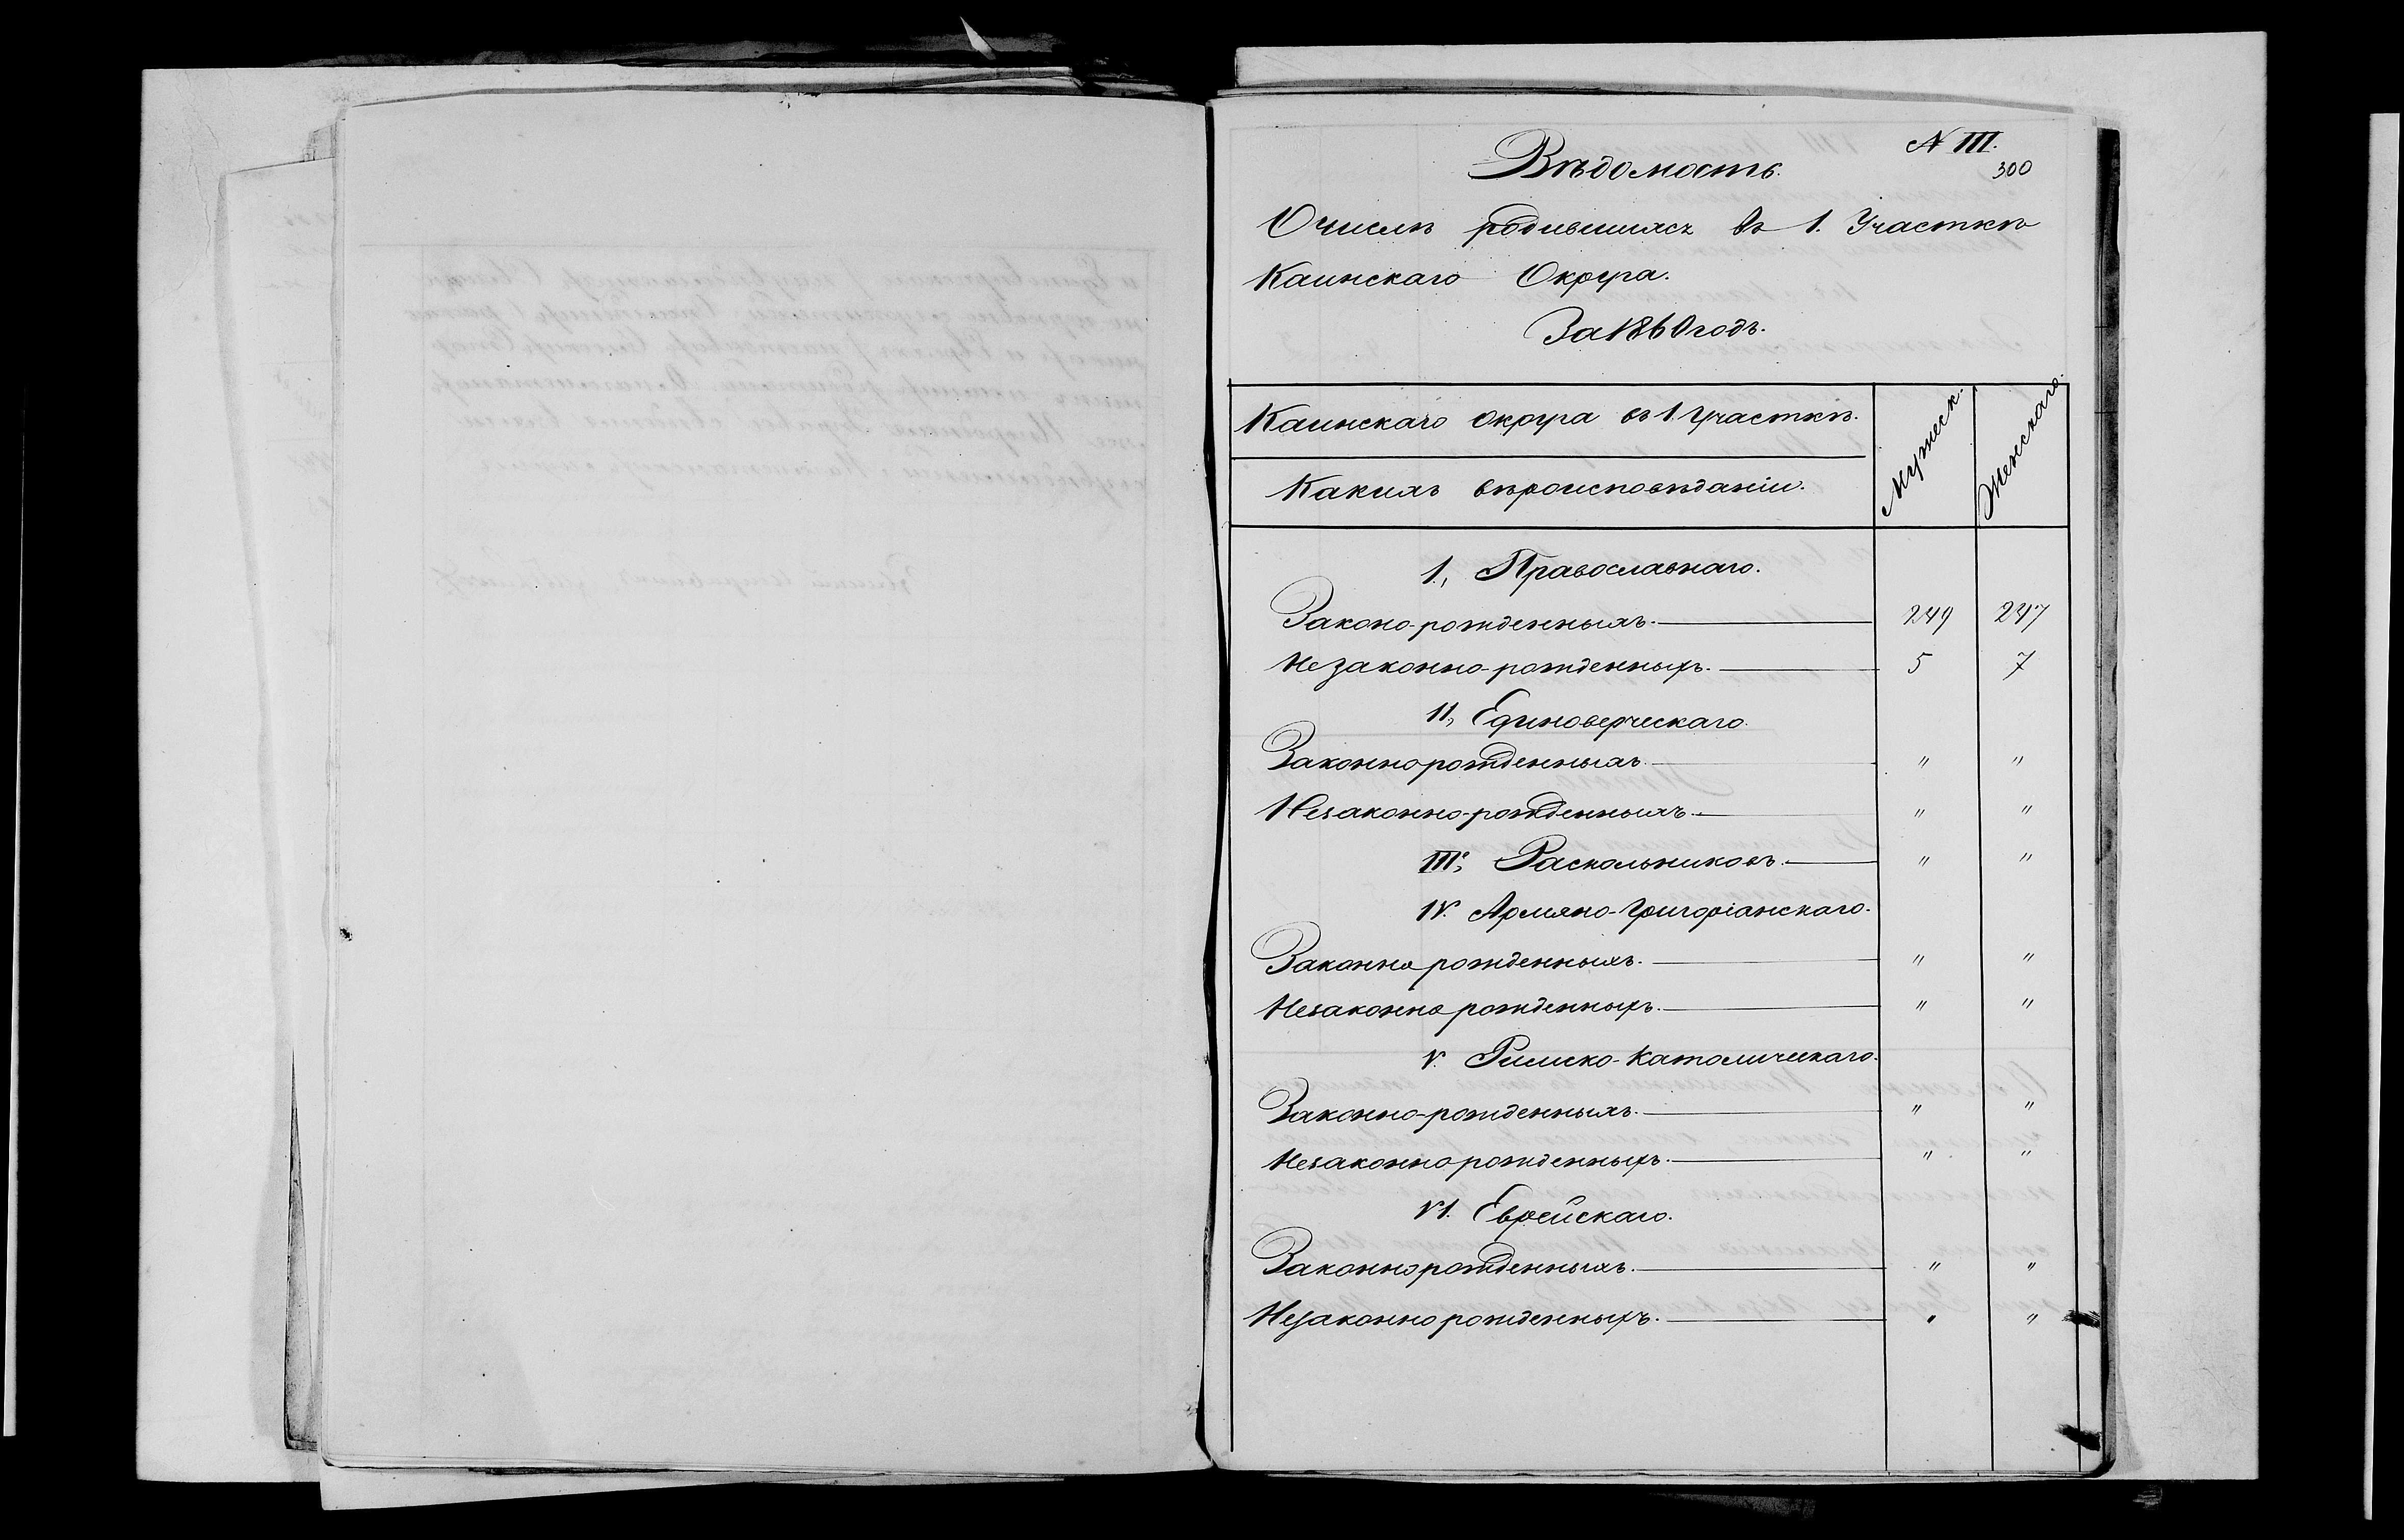 N III.
300
Вѣдомость.
О числѣ родившихся въ 1. Участкѣ
Каинскаго Округа.
За 1860 годъ.
Каинскаго округа въ 1. Участкѣ.
Мужеск.
Женскаго.
Какихъ вѣроисповѣданіи.
1., Православнаго.
Законо-рожденныхъ. 249 247
Незаконно-рожденныхъ. 5 7
II, Единоверческаго.
Законнорожденныхъ. " "
Незаконно-рожденныхъ. " "
III, Раскольниковъ. " "
IV. Армяно-Григоріанскаго.
Законно рожденныхъ. " "
Незаконно рожденныхъ. " "
V. Римско-Католическаго.
Законно-рожденныхъ. " "
Незаконно рожденныхъ. " "
VI. Еврейскаго.
Законнорожденныхъ. " "
Незаконно рожденныхъ. " "